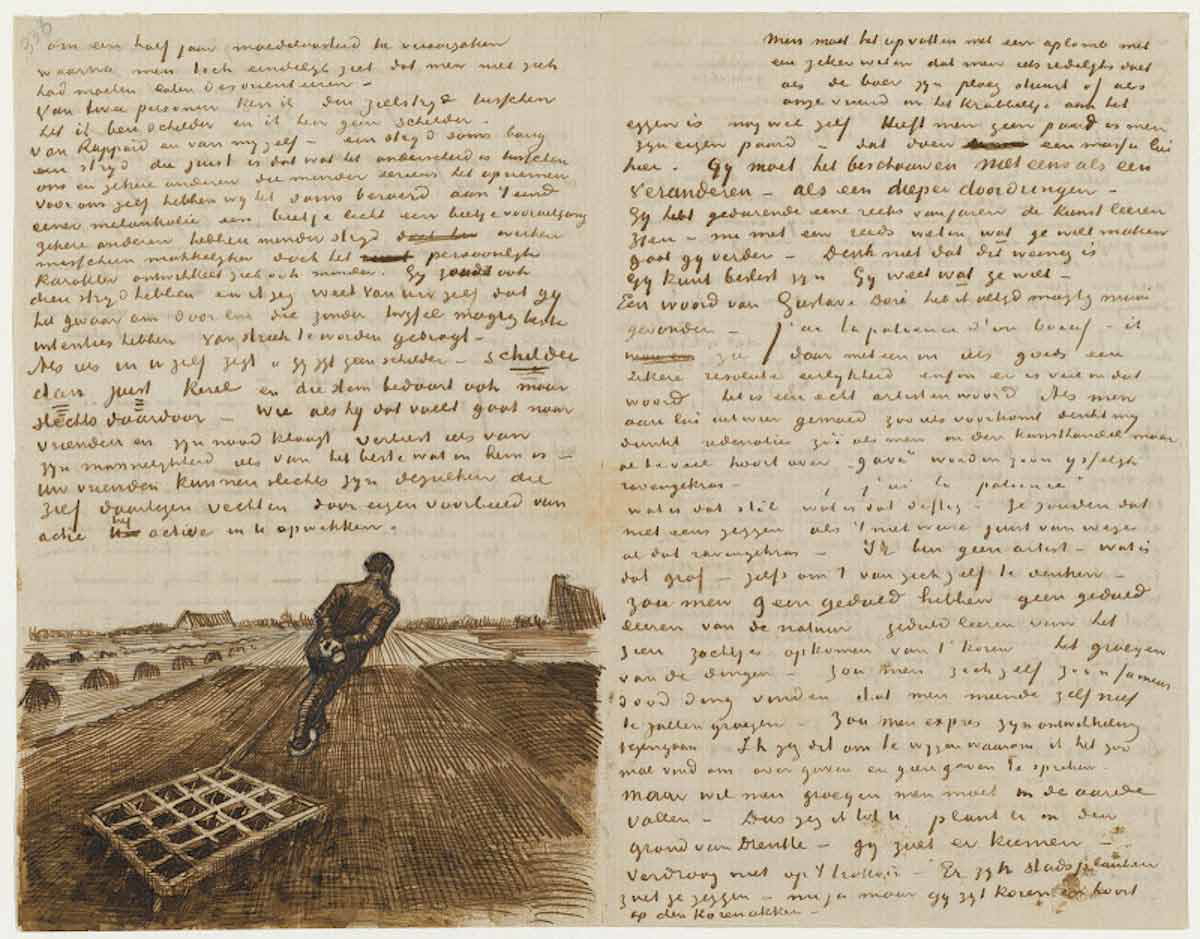 336
om een half jaar moedeloosheid te veroorzaken
waarna men toch eindelijk ziet dat men niet zich
had moeten laten desorienteeren –
Van twee personen ken ik den zielstrijd tusschen
het ik ben schilder en ik ben geen schilder.
Van Rappard en van mijzelf – een strijd soms bang
een strijd die juist is dat wat het onderscheid is tusschen
ons en zekere anderen die minder serieus het opnemen
voor ons zelf hebben wij het soms beroerd aan 't eind
eener melankolie een beetje licht een beetje vooruitgang
zekere anderen hebben minder strijd werken
misschien makkelijker doch het persoonlijk
karakter ontwikkelt zich ook minder. Gij zoudt ook
dien strijd hebben en ik zeg weet van uw zelf dat gij
het gevaar om door lui die zonder twijfel magtig beste
intenties hebben van streek te worden gebragt –
Als iets in U zelf zegt "gij zijt geen schilder – schilder
dan juist kerel en die stem bedaart ook maar
slechts daardoor – Wie als hij dat voelt gaat naar
vrienden en zijn nood klaagt verliest iets van
zijn mannelijkheid iets van het beste wat in hem is –
Uw vrienden kunnen slechts zijn dezulken die
zelf daartegen vechten door eigen voorbeeld van
actie het active in U opwekken.
Men moet het opvatten met een aplomb met
een zeker weten dat men iets redelijks doet
als de boer zijn ploeg stuurt of als
onze vriend in het krabbeltje aan het
eggen is nog wel zelf Heeft men geen paard is men
zijn eigen paard – dat doen een massa lui
hier. Gij moet het beschouwen niet eens als een
veranderen – als een dieper doordringen –
Gij hebt gedurende eene reeks van jaren de kunst leeren
zien – nu met een reeds weten wat ge wilt maken
gaat gij verder – Denk niet dat dit weinig is
Gij kunt beslist zijn Gij weet wat ge wilt –
Een woord van Gustave Doré heb ik altijd magtig mooi
gevonden – j'ai la patience d'un boeuf – ik
zie daar meteen in iets goeds een
zekere resolute eerlijkheid enfin er is veel in dat
woord het is een echt artisten woord Als men
aan lui uit wier gemoed zoo iets voorkomt denkt mij
dunkt redenaties zóó als men in den kunsthandel maar
al te veel hoort over "gave" worden zoo'n ijsselijk
ravengekras – j'ai la patience
wat is dat stil wat is dat deftig – Ze zouden dat
niet eens zeggen als 't niet ware juist van wege
al dat ravengekras – Ik ben geen artist – wat is
dat grof – zelfs om 't van zich zelf te denken –
zou men geen geduld hebben geen geduld
leeren van de natuur geduld leeren van het
zien zachtjes opkomen van 't koren het groeijen
van de dingen – Zou men zich zelf zoo'n fameus
dood ding vinden dat men meende zelf niet
te zullen groeijen – Zou men expres zijn ontwikkeling
tegengaan Ik zeg dit om te wijzen waarom ik het zoo
mal vind om over gaven en geen gaven te spreken.
Maar wil men groeijen men moet in de aarde
vallen – Dus zeg ik tot U plant U in den
grond van Drenthe – gij zult er kiemen –
Verdroog niet op 't trottoir – Er zijn stadsplanten
zult ge zeggen – nu ja maar gij zijt koren en hoort
op den korenakker –